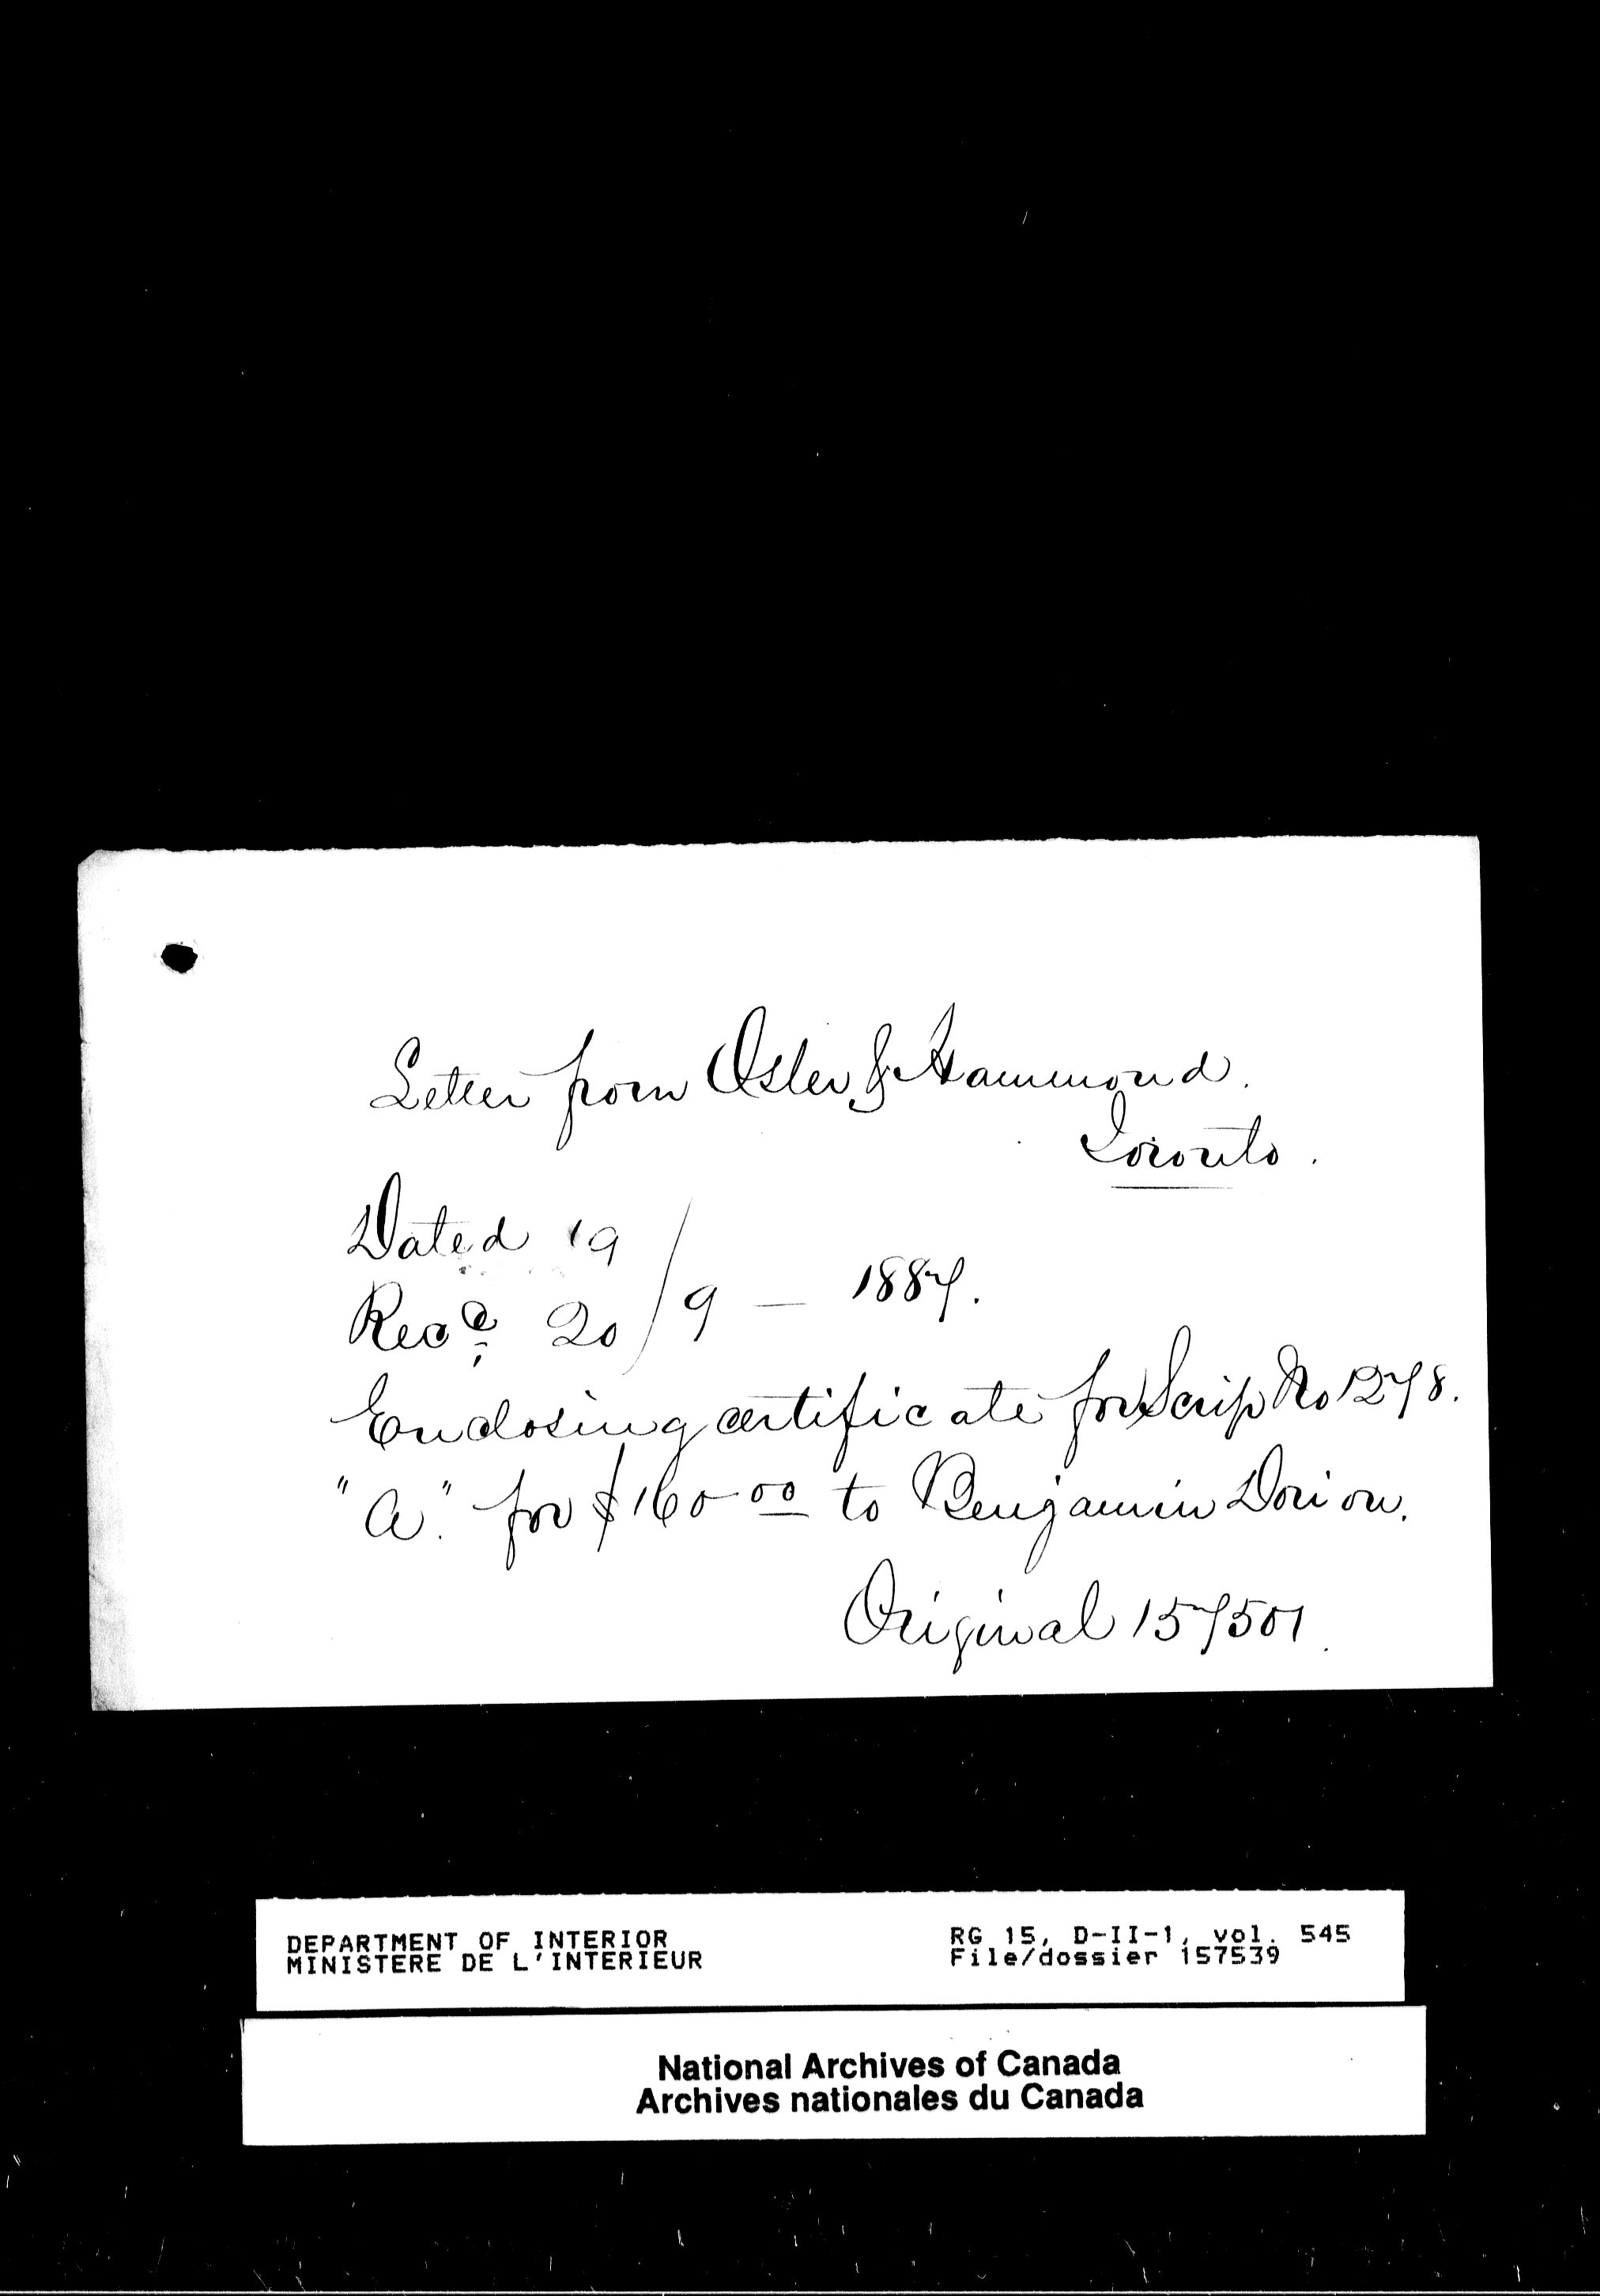 Letter from Osler & Hammond.
Toronto.
Dated 19
Recd 20 / 9 — 1887.
Enclosing certificate for Scrip No 1278.
"A." for $160 00 to Benjamin Dorion.
Original 157501.
DEPARTMENT OF INTERIOR
MINISTERE DE L'INTERIEUR
RG 15, D-II-1, vol. 545
File/dossier 157539
National Archives of Canada
Archives nationales du Canada